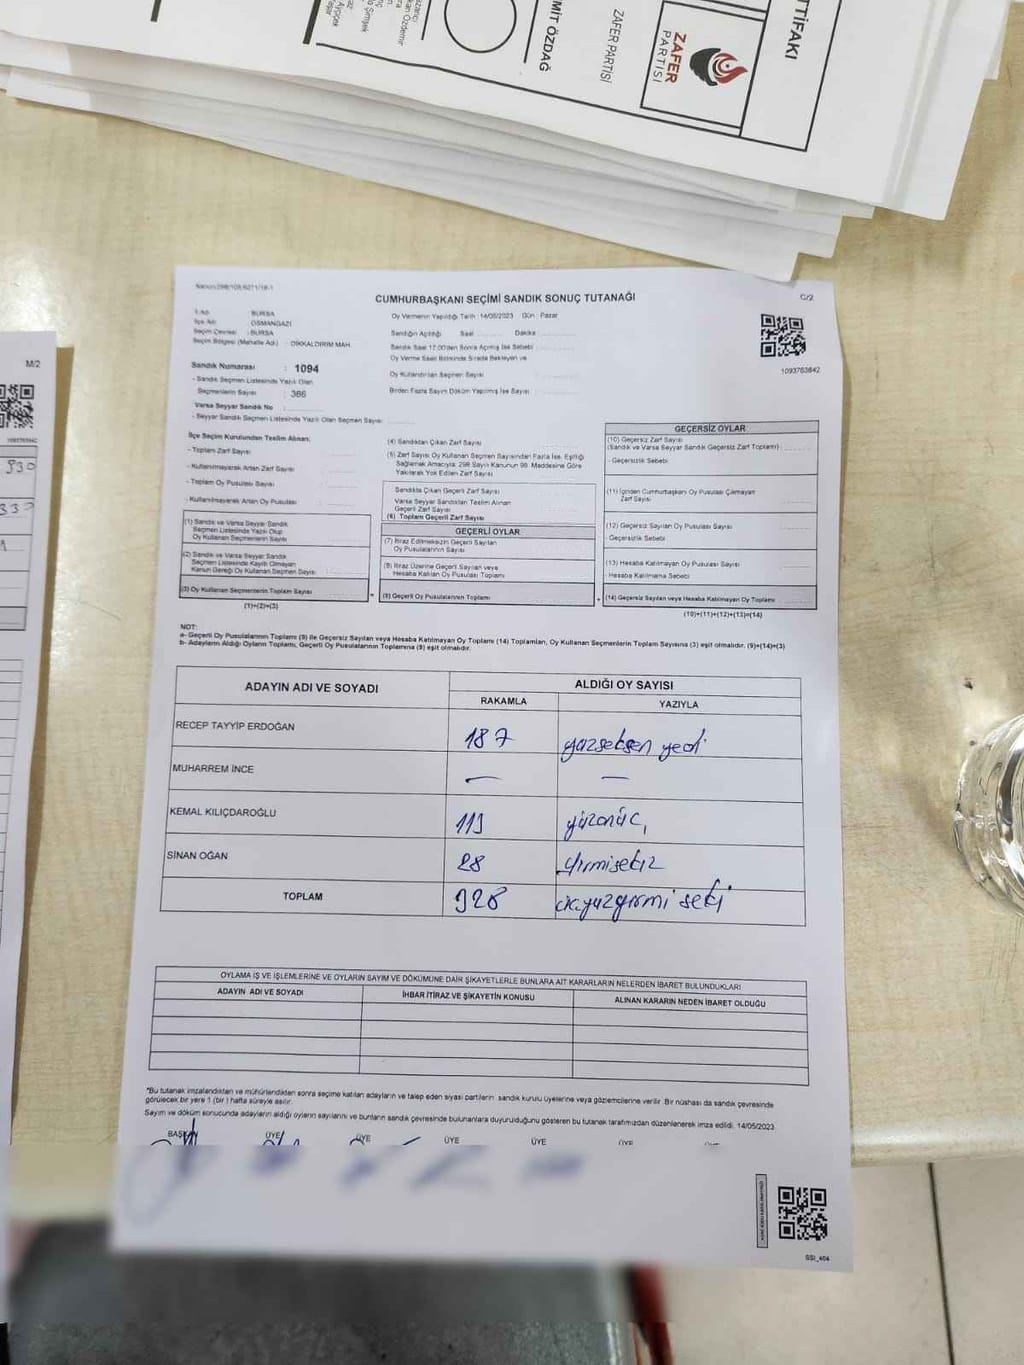 TTİFAKI
ZAFER
PARTİSİ
ZAFER PARTİSİ
MİT ÖZDAĞ
kan Özdemir
M/2
1093763842
330
CUMHURBAŞKANI SEÇİMİ SANDIK SONUÇ TUTANAĞI
C/2
İl Adı : BURSA
İlçe Adı : OSMANGAZİ
Seçim Çevresi : BURSA
Seçim Bölgesi (Mahalle Adı) : DİKKALDIRIM MAH.
Sandık Numarası : 1094
- Sandık Seçmen Listesinde Yazılı Olan
Seçmenlerin Sayısı : 366
Varsa Seyyar Sandık No :
- Seyyar Sandık Seçmen Listesinde Yazılı Olan Seçmen Sayısı
Oy Vermenin Yapıldığı Tarih : 14/05/2023 Gün : Pazar
Sandığın Açıldığı Saat Dakika
Sandık Saat 17:00'den Sonra Açılmış İse Sebebi
Oy Verme Saati Bitiminde Sırada Bekleyen ve
Oy Kullandırılan Seçmen Sayısı
Birden Fazla Sayım Döküm Yapılmış İse Sayısı
1093763842
İlçe Seçim Kurulundan Teslim Alınan;
- Toplam Zarf Sayısı
- Kullanılmayarak Artan Zarf Sayısı
- Toplam Oy Pusulası Sayısı
- Kullanılmayarak Artan Oy Pusulası
(1) Sandık ve Varsa Seyyar Sandık
Seçmen Listesinde Yazılı Olup
Oy Kullanan Seçmenlerin Sayısı
(2) Sandık ve Varsa Seyyar Sandık
Seçmen Listesinde Kayıtlı Olmayan
Kanun Gereği Oy Kullanan Seçmen Sayısı
(3) Oy Kullanan Seçmenlerin Toplam Sayısı
(1)+(2)=(3)
(4) Sandıktan Çıkan Zarf Sayısı
(5) Zarf Sayısı Oy Kullanan Seçmen Sayısından Fazla İse, Eşitliği
Sağlamak Amacıyla; 298 Sayılı Kanunun 98. Maddesine Göre
Yakılarak Yok Edilen Zarf Sayısı
Sandıkta Çıkan Geçerli Zarf Sayısı
Varsa Seyyar Sandıktan Teslim Alınan
Geçerli Zarf Sayısı
(6) Toplam Geçerli Zarf Sayısı
GEÇERLİ OYLAR
(7) İtiraz Edilmeksizin Geçerli Sayılan
Oy Pusulalarının Sayısı
(8) İtiraz Üzerine Geçerli Sayılan veya
Hesaba Katılan Oy Pusulası Toplamı
(9) Geçerli Oy Pusulalarının Toplamı
GEÇERSİZ OYLAR
(10) Geçersiz Zarf Sayısı
(Sandık ve Varsa Seyyar Sandık Geçersiz Zarf Toplamı)
- Geçersizlik Sebebi
(11) İçinden Cumhurbaşkanı Oy Pusulası Çıkmayan
Zarf Sayısı
(12) Geçersiz Sayılan Oy Pusulası Sayısı
- Geçersizlik Sebebi
(13) Hesaba Katılmayan Oy Pusulası Sayısı
- Hesaba Katılmama Sebebi
(14) Geçersiz Sayılan veya Hesaba Katılmayan Oy Toplamı
(10)+(11)+(12)+(13)=(14)
NOT:
a- Geçerli Oy Pusulalarının Toplamı (9) ile Geçersiz Sayılan veya Hesaba Katılmayan Oy Toplamı (14) Toplamları, Oy Kullanan Seçmenlerin Toplam Sayısına (3) eşit olmalıdır. (9)+(14)=(3)
b- Adayların Aldığı Oyların Toplamı, Geçerli Oy Pusulalarının Toplamına (9) eşit olmalıdır.
ADAYIN ADI VE SOYADI
ALDIĞI OY SAYISI
RAKAMLA YAZIYLA
RECEP TAYYİP ERDOĞAN 187 yüzseksen yedi
MUHARREM İNCE — —
KEMAL KILIÇDAROĞLU 113 yüzonüç
SİNAN OĞAN 28 yirmisekiz
TOPLAM 328
OYLAMA İŞ VE İŞLEMLERİNE VE OYLARIN SAYIM VE DÖKÜMÜNE DAİR ŞİKAYETLERLE BUNLARA AİT KARARLARIN NELERDEN İBARET BULUNDUKLARI
ADAYIN ADI VE SOYADI İHBAR İTİRAZ VE ŞİKAYETİN KONUSU ALINAN KARARIN NEDEN İBARET OLDUĞU
*Bu tutanak imzalandıktan ve mühürlendikten sonra seçime katılan adayların ve talep eden siyasi partilerin sandık kurulu üyelerine veya gözlemcilerine verilir. Bir nüshası da sandık çevresinde
görülecek bir yere 1 (bir) hafta süreyle asılır.
Sayım ve döküm sonucunda adayların aldığı oyların sayılarını ve bunların sandık çevresinde bulunanlara duyurulduğunu gösteren bu tutanak tarafımızdan düzenlenerek imza edildi. 14/05/2023
BAŞKAN ÜYE ÜYE ÜYE ÜYE ÜYE
SSI_404